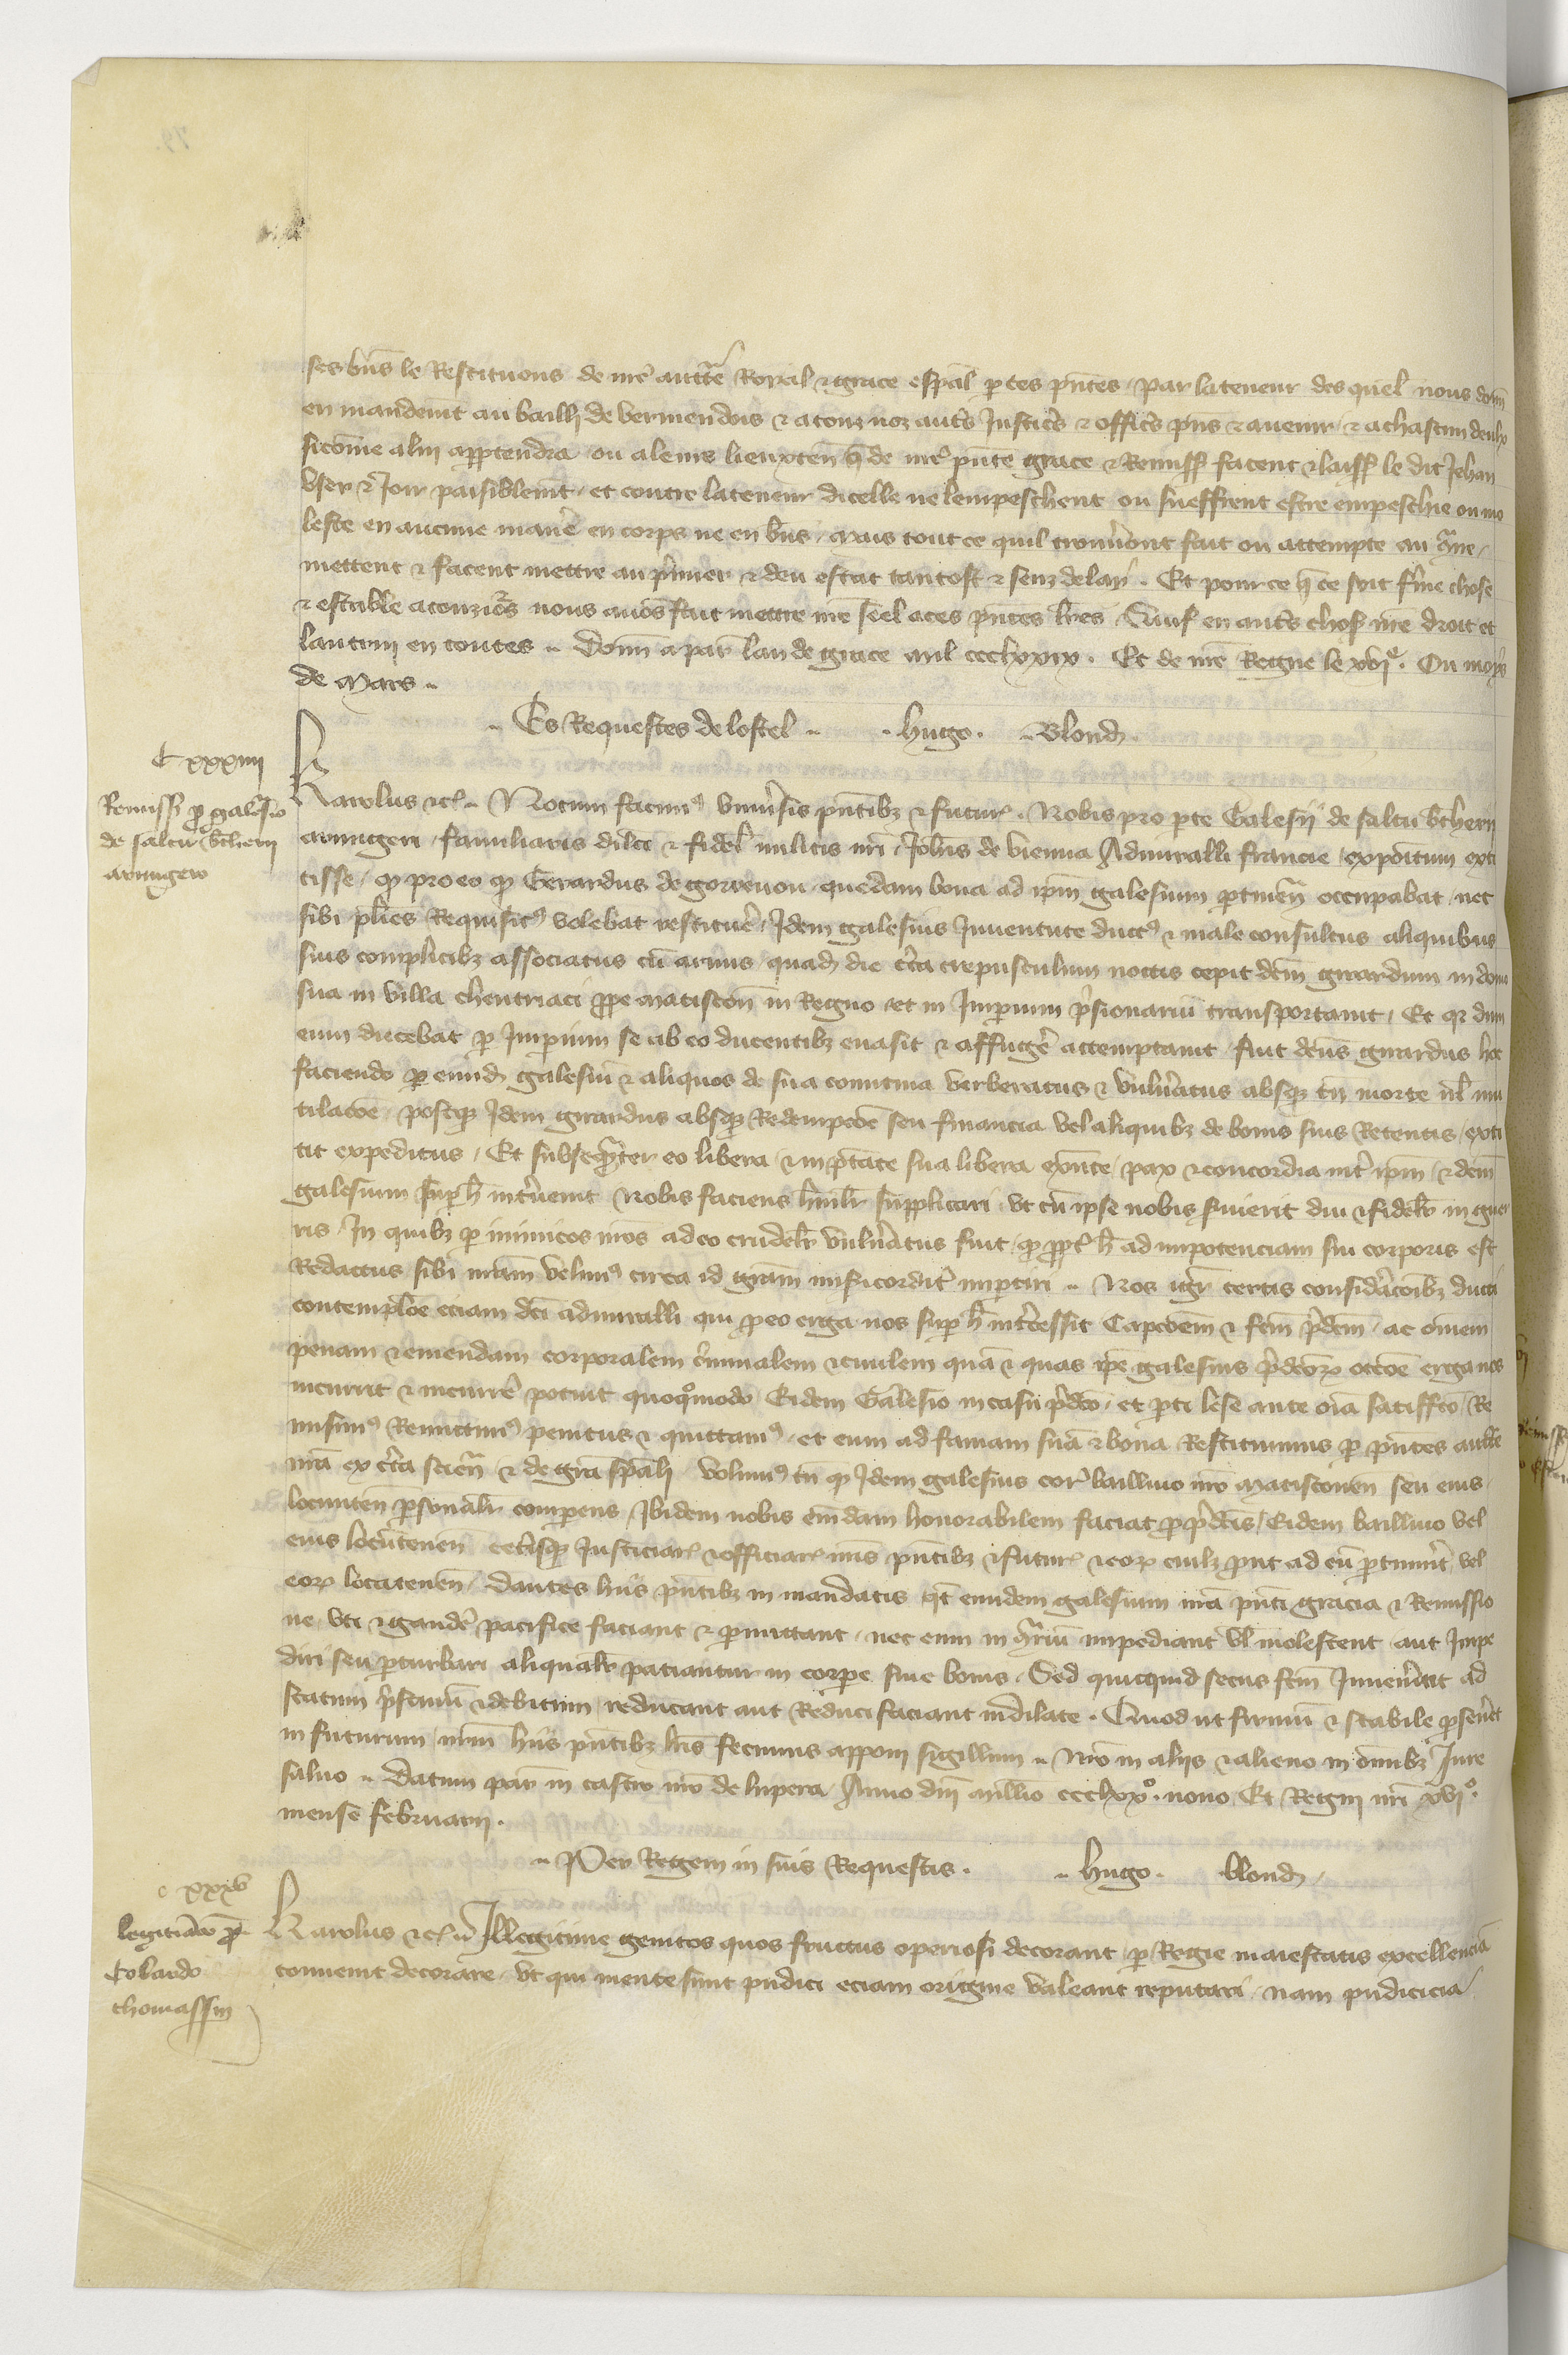 ses bn̄s le Restituons de nrē auctte Royal & grace esp̄al p ces pn̄tes par la teneur des quel nous donn̄
en mandemt au bailli de vermendois & a touz noz autrs Justicrs & officrs pn̄s & avenir & a chascun deulx
sicōme a lui app̱tendra ou a leurs lieuxten̄ q̄ de nrē pn̄te grace & Remiss facent & laiss le dit Jehan
User & Joir paisiblemt et contre la teneur dicelle ne lempeschent ou sueffrent estre empeschie ou mo
leste en aucune manie en corps ne en bn̄s mais tout ce quil trouuront fait ou attempte au ꝯtrare
mettent & facent mettre au prmier & deu estat tantost & senz delay. Et pour ce q̄ ce soit frme chose
& estable a touziors nous avōs fait mettre nrē seel a ces pn̄tes lrēs Sauf en autrs chos nrē droit et
lautrui en toutes Donn̄ a par̄ lan de grace mil ccclxxix. Et de nrē Regne le xvie. Ou moys
de mars
Es Requestes de lostel hugo. Blond
C xxxiiii
Remiss p galesio
de saltu bcheri
armigero
Karolus &c Notum facimꝰ univrsis pn̄tibꝫ & futur. Nobis pro pte Galesii de saltu bcheri
armigeri familiaris dilci & fidel militis nrī Johis de vienna Admiralli francie expoitum exti
tisse qp pro eo qp Gerardus de gorrenon quedam bona ad ipm̄ galesium ptinen̄ occupabat nec
sibi plies Requisitꝰ volebat restituere Idem galesius Juventute ductꝰ & male consultus aliquibus
suis complicibꝫ associatus cū armis quad die circa crepusculum noctis cepit dcm̄ girardum in domo
sua in villa chentriaci ꝓpe matiscon̄ in Regno et in Imperium prsionariū transportavit Et qr dum
eum ducebat p Imperium se ab eo ducentibꝫ evasit & affugere attemptavit fuit dcūs girardus hoc
faciendo p eund galesiū & aliquos de sua comitiva verberatus & vulneratus absqꝫ tn̄ morte vl mu
tilacōe postqꝫ Idem girardus absqꝫ Redempcōe seu financia vel aliquibꝫ de bonis suis Retentis exti
tit expeditus Et subsequenter eo libera & in ptate sua libera exn̄te pax & concordia intr ipm̄ & dcm̄
galesium suꝑ h̄ intrvenit Nobis faciens hmil̄r supplicari ut cū ipse nobis s̄vierit diu & fidelr in guer
ris In quibꝫ p inimicos nros adeo crudelr vulneratus fuit qp ꝓptr h̄ ad impotenciam sui corporis est
Redactus sibi nrām velimꝰ circa id grām misicorditr imptiri Nos igr certis consideracōibꝫ ducti
contemplōe eciam dci admiralli qui p eo erga nos suꝑ h̄ intrcessit Capcōem & fcm̄ prdcm ac omnem
penam & emendam corporalem criminalem & civilem quā & quas ipē galesius prdcorꝝ occōe erga nos
incurrit & incurrere potuit quoqomodo Eidem Galesio in casu prdco et pti lese ante oīa satisffco Re
misimꝰ Remittimꝰ penitus & quittamꝰ et eum ad famam suā & bona Restituimus p pn̄tes aucte
nrā ex crta scien̄ & de grā sp̄ali Volumꝰ tn̄ qp Idem galesius cor baillivo nro Matisconen̄ seu eius
locumten̄ psonalr comperens Ibidem nobis emdam honorabilem faciat p prdcis Eidem baillivo vel
eius locutenen̄ cetrisqꝫ Justiciar & officiar nris pn̄tibꝫ & futur & eorꝝ cuilꝫ prout ad eū ptinuit vel
eorꝝ locatenen̄ Dantes hiis pn̄tibꝫ in mandatis qt̄ eundem galesium nrā pn̄ti gracia & Remissio
ne uti & gaudere pacifice faciant & pmittant nec eum in ꝯtrariū impediant vl molestent aut Impe
diri seu pturbari aliqualr paciantur in corpe sive bonis. Sed quicquid secus fcm̄ Invenerit ad
statum prstinū & debitum reducant aut Reduci faciant indilate. Quod ut firmū & stabile pseveret
in futurum nrm̄ hiis pn̄tibꝫ lris fecimus apponi sigillum Nrō in aliis & alieno in omibꝫ Jure
salvo Datum par̄ in castro nrō de lupera Anno dn̄i millio ccclxxo. nono Et Regni nrī xvio.
mense februarii.
Per Regem in suis Requestis. hugo. blond
c xxxv
legitimaco p
Colardo
thomassin
Karolus &c Illegitime genitos quos fructus operiosi decorant p Regie maiestatis excellenciā
convenit decorare Ut qui mente sunt pudici eciam origine valeant reputari nam pudicicia